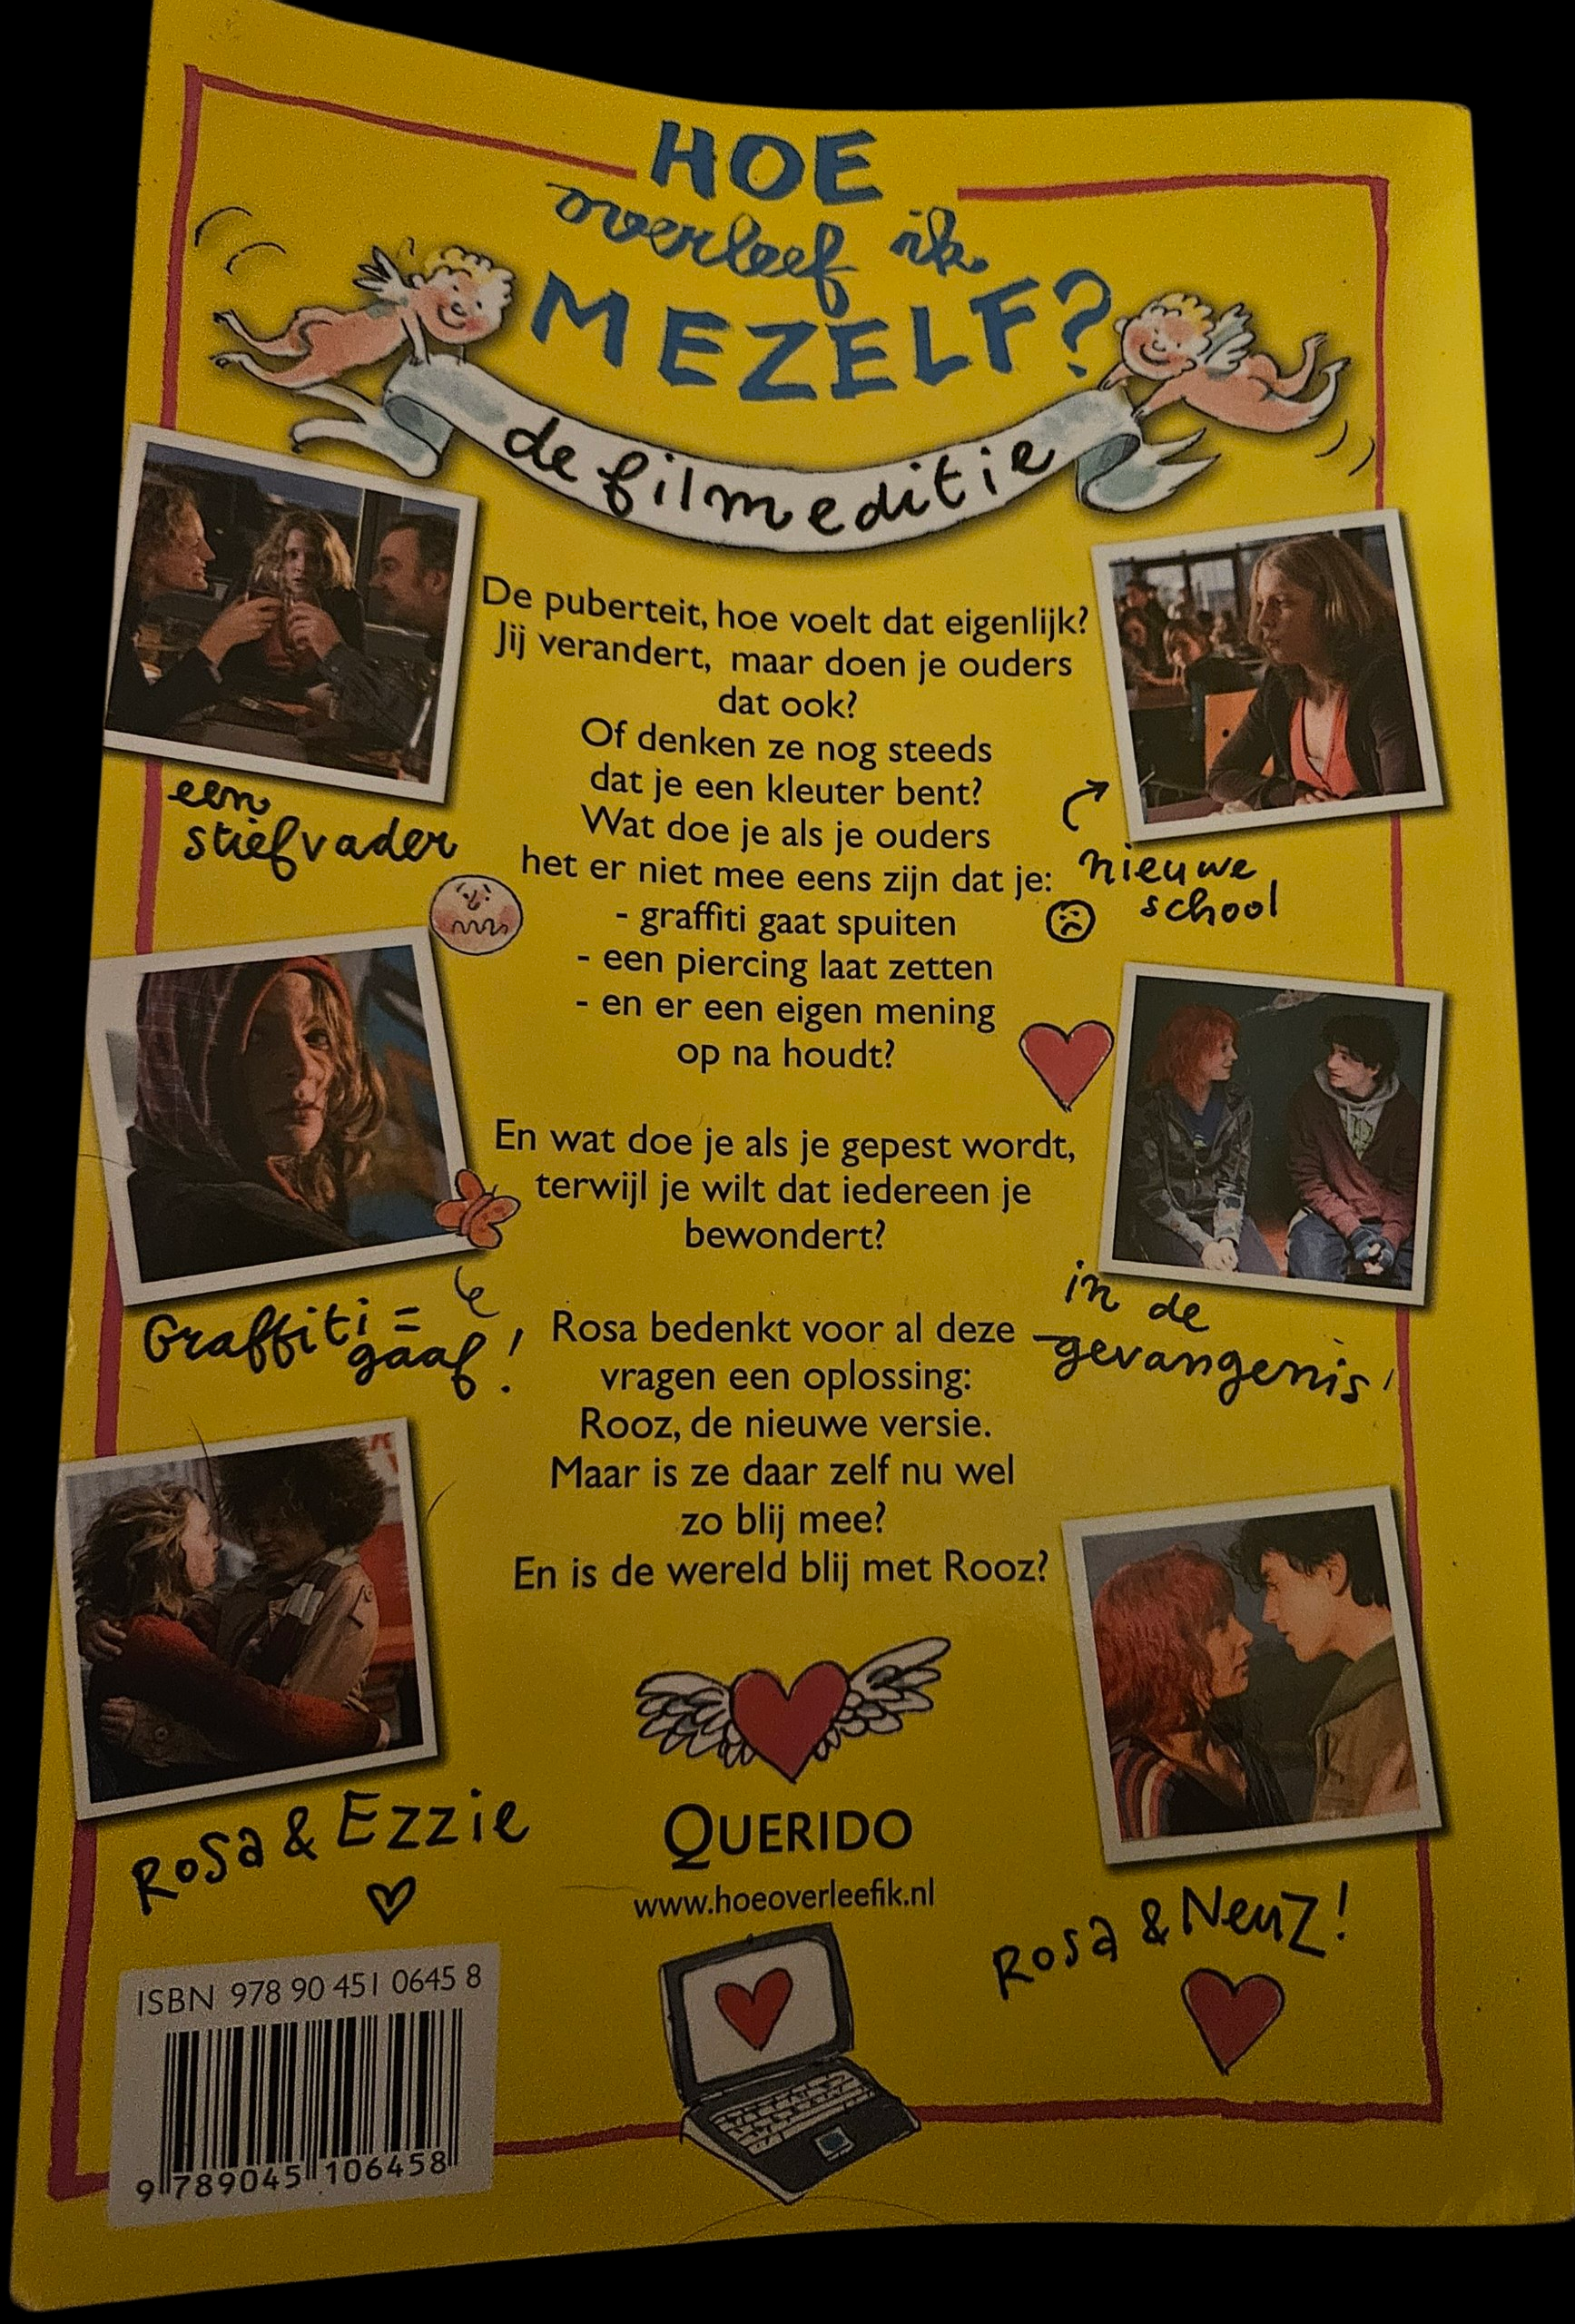 HOE
overleef ik
MEZELF?
de filmeditie
De puberteit, hoe voelt dat eigenlijk?
Jij verandert, maar doen je ouders
dat ook?
Of denken ze nog steeds
dat je een kleuter bent?
Wat doe je als je ouders
het er niet mee eens zijn dat je:
- graffiti gaat spuiten
- een piercing laat zetten
- en er een eigen mening
op na houdt?
En wat doe je als je gepest wordt,
terwijl je wilt dat iedereen je
bewondert?
Rosa bedenkt voor al deze
vragen een oplossing:
Rooz, de nieuwe versie.
Maar is ze daar zelf nu wel
zo blij mee?
En is de wereld blij met Rooz?
een
stiefvader
nieuwe
school
Graffiti =
gaaf!
in de
gevangenis!
Rosa & Ezzie
Rosa & Neuz!
QUERIDO
www.hoeoverleefik.nl
ISBN 978 90 451 0645 8
9 789045 106458